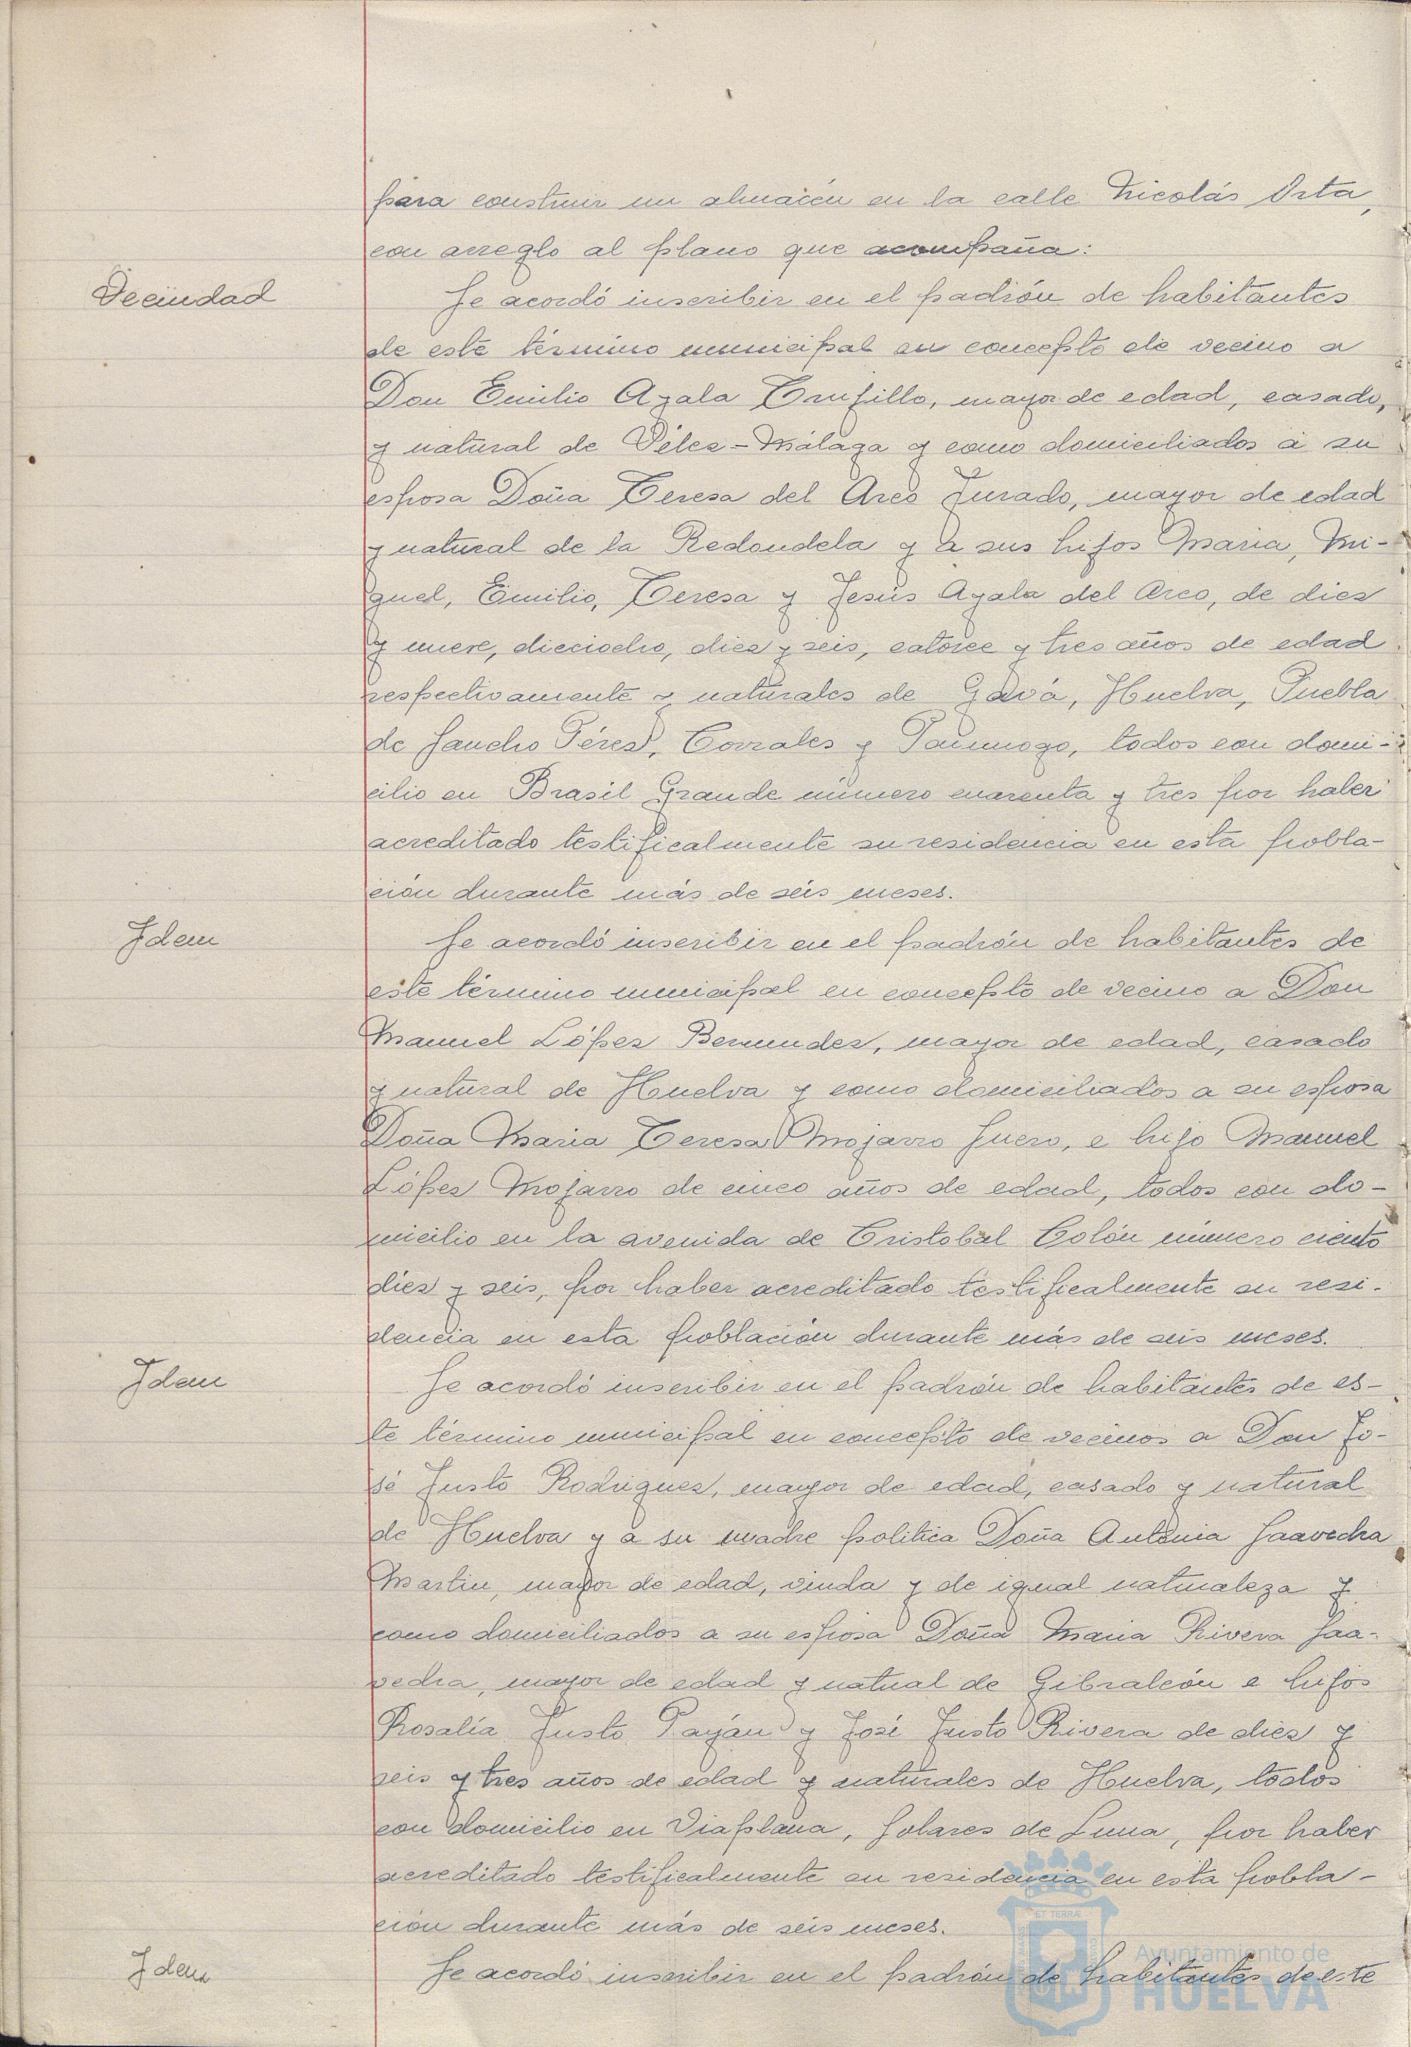 para construir un almacén en la calle Nicolás Orta,
con arreglo al plano que acompaña:
Vecindad
Se acordó inscribir en el padrón de habitantes
de este término municipal en concepto de vecino a
Don Emilio Ayala Trujillo, mayor de edad, casado,
y natural de Vélez-Málaga y como domiciliados a su
esposa Doña Teresa del Arco Jurado, mayor de edad
y natural de la Redondela y a sus hijos Maria, Mi-
guel, Emilio, Teresa y Jesús Ayala del Arco, de diez
y nueve, dieciocho, diez y seis, catorce y tres años de edad
respectivamente y naturales de Gavá, Huelva, Puebla
de Sancho Pérez, Corrales y Paimogo, todos con domi-
cilio en Brasil Grande número cuarenta y tres por haber
acreditado testificalmente su residencia en esta pobla-
ción durante más de séis meses.
Idem
Se acordó inscribir en el padrón de habitantes de
este término municipal en concepto de vecino a Don
Manuel López Bermudez, mayor de edad, casado
y natural de Huelva y como domiciliados a su esposa
Doña Maria Teresa Mojarro Suero, e hijo Manuel
López Mojarro de cinco años de edad, todos con do-
micilio en la avenida de Cristobal Colón número ciento
diez y seis, por haber acreditado testificalmente su resi-
dencia en esta población durante más de seis meses.
Idem
Se acordó inscribir en el padrón de habitantes de es-
te término municipal en concepto de vecinos a Don Jo-
sé Justo Rodriguez, mayor de edad, casado y natural
de Huelva y a su madre politica Doña Antonia Saavedra
Martin, mayor de edad, viuda y de igual naturaleza y
como domiciliados a su esposa Doña Maria Rivera Saa-
vedra, mayor de edad y natual de Gibraleón e hijos
Rosalía Justo Payán y José Justo Rivera de diez y
seis y tres años de edad y naturales de Huelva, todos
con domicilio en Viaplana, Solares de Luna, por haber
acreditado testificalmente su residencia en esta pobla-
ción durante más de séis meses.
Idem
Se acordó inscribir en el padrón de habitantes de este
ET TERRÆ
Ayuntamiento de
HUELVA